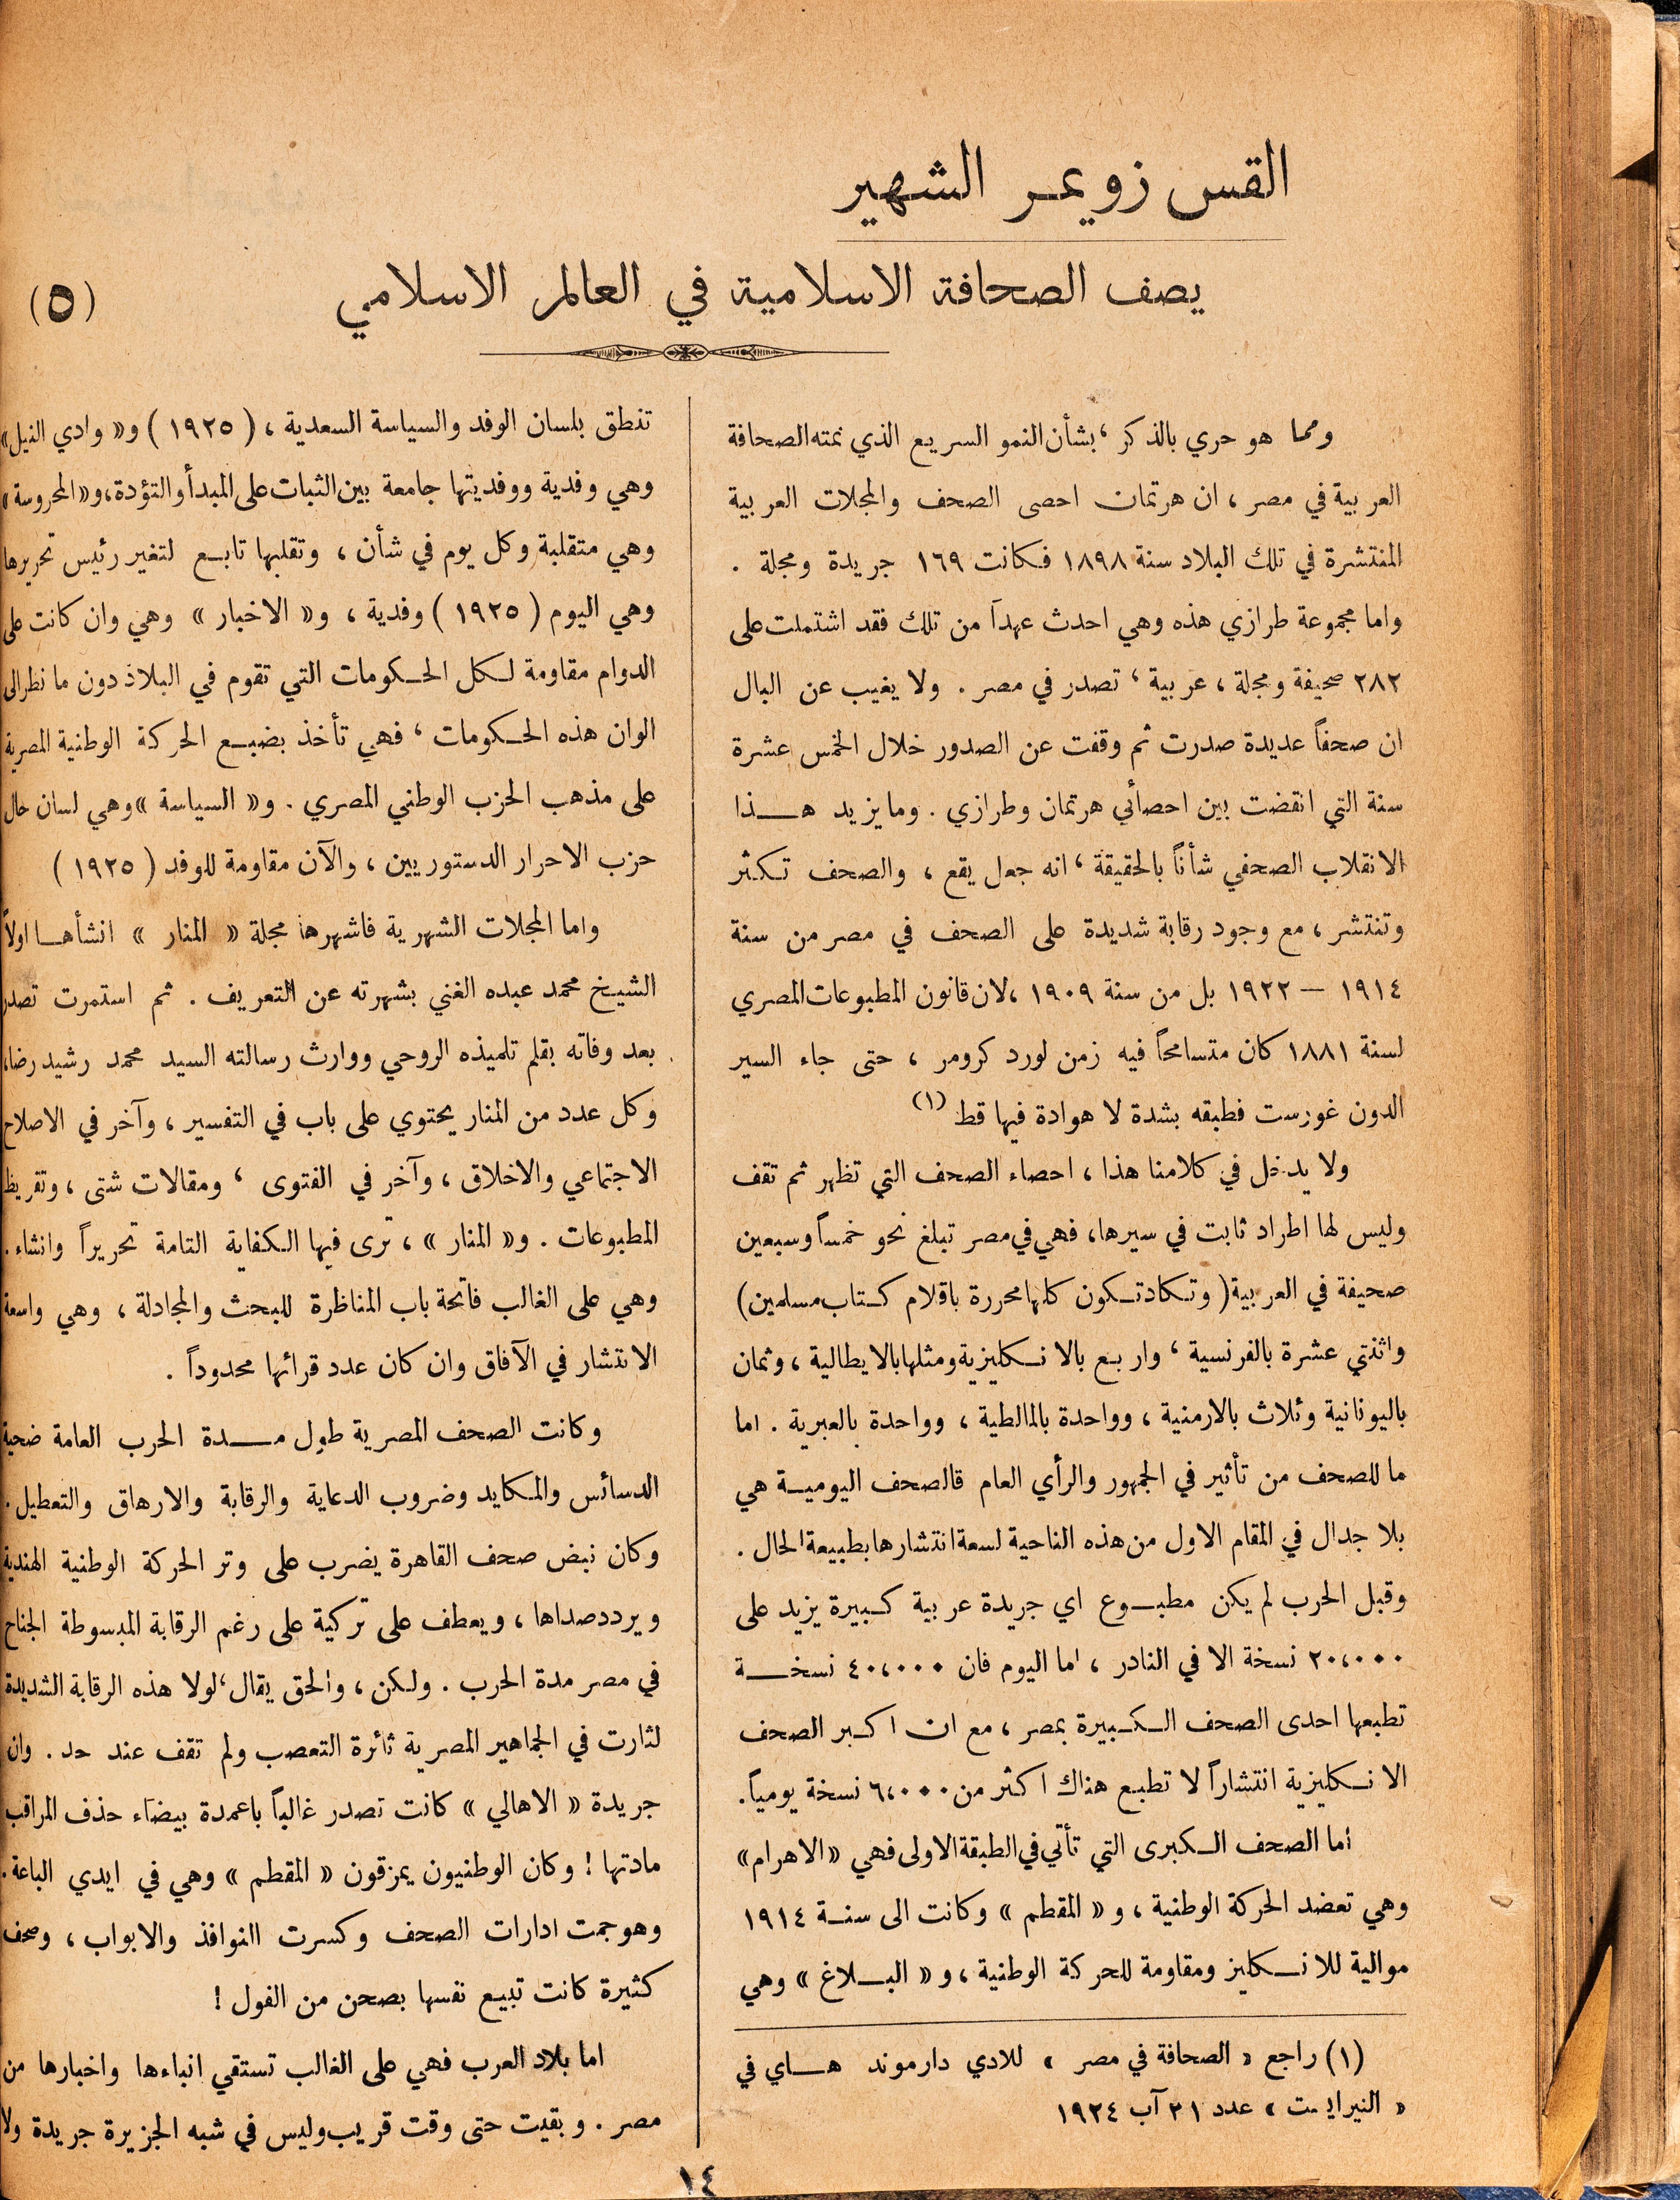 القس زويمر الشهير
يصف الصحافة الاسلامية في العالم الاسلامي
(٥)
ومما هو حري بالذكر، بشأن النمو السريع الذي نمته الصحافة
العربية في مصر، ان هرتمان احصى الصحف والمجلات العربية
المنتشرة في تلك البلاد سنة ١٨٩٨ فكانت ١٦٩ جريدة ومجلة .
واما مجموعة طرازي هذه وهي احدث عهداً من تلك فقد اشتملت على
٢٨٢ صحيفة ومجلة، عربية، تصدر في مصر . ولا يغيب عن البال
ان صحفاً عديدة صدرت ثم وقفت عن الصدور خلال الخمس عشرة
سنة التي انقضت بين احصائي هرتمان وطرازي . وما يزيد هـذا
الانقلاب الصحفي شأناً بالحقيقة، انه جعل يقع، والصحف تكثر
وتنتشر، مع وجود رقابة شديدة على الصحف في مصر من سنة
١٩١٤ — ١٩٢٢ بل من سنة ١٩٠٩، لان قانون المطبوعات المصري
لسنة ١٨٨١ كان متسامحاً فيه زمن لورد كرومر، حتى جاء السير
الدون غورست فطبقه بشدة لا هوادة فيها قط (١)
ولا يدخل في كلامنا هذا، احصاء الصحف التي تظهر ثم تقف
وليس لها اطراد ثابت في سيرها، فهي في مصر تبلغ نحو خمساً وسبعين
صحيفة في العربية (وتكاد تكون كلها محررة باقلام كتاب مسلمين)
واثنتي عشرة بالفرنسية، واربع بالانكليزية ومثلها بالايطالية، وثمان
باليونانية وثلاث بالارمنية، وواحدة بالمالطية، وواحدة بالعبرية . اما
ما للصحف من تأثير في الجمهور والرأي العام قالصحف اليومية هي
بلا جدال في المقام الاول من هذه الناحية لسعة انتشارها بطبيعة الحال .
وقبل الحرب لم يكن مطبوع اي جريدة عربية كبيرة يزيد على
٢٠،٠٠٠ نسخة الا في النادر، اما اليوم فان ٤٠،٠٠٠ نسخـة
تطبعها احدى الصحف الكبيرة بمصر، مع ان اكبر الصحف
الانكليزية انتشاراً لا تطبع هناك اكثر من ٦،٠٠٠ نسخة يومياً.
أما الصحف الكبرى التي تأتي في الطبقة الاولى فهي «الاهرام»
وهي تعضد الحركة الوطنية، و« المقطم » وكانت الى سنة ١٩١٤
موالية للانكليز ومقاومة للحركة الوطنية، و« البلاغ » وهي
(١) راجع « الصحافة في مصر » للادي دارموند هـاي في
« النيرايست » عدد ٢١ آب ١٩٢٤
تنطق بلسان الوفد والسياسة السعدية، (١٩٢٥) و« وادي النيل»
وهي وفدية ووفديتها جامعة بين الثبات على المبدأ والتؤدة، و«المحروسة»
وهي متقلبة وكل يوم في شأن، وتقلبها تابع لتغير رئيس تحريرها
وهي اليوم (١٩٢٥) وفدية، و« الاخبار » وهي وان كانت على
الدوام مقاومة لكل الحكومات التي تقوم في البلاد دون ما نظر الى
الوان هذه الحكومات، فهي تأخذ بضبع الحركة الوطنية المصرية
على مذهب الحزب الوطني المصري . و« السياسة » وهي لسان حال
حزب الاحرار الدستوريين، والآن مقاومة للوفد (١٩٢٥)
واما المجلات الشهرية فاشهرها مجلة « المنار » انشأهـا اولاً
الشيخ محمد عبده الغني بشهرته عن التعريف . ثم استمرت تصدر
بعد وفاته بقلم تلميذه الروحي ووارث رسالته السيد محمد رشيد رضا،
وكل عدد من المنار يحتوي على باب في التفسير، وآخر في الاصلاح
الاجتماعي والاخلاق، وآخر في الفتوى، ومقالات شتى، وتقريظ
المطبوعات . و« المنار »، ترى فيها الكفاية التامة تحريراً وانشاء .
وهي على الغالب فاتحة باب المناظرة للبحث والمجادلة، وهي واسعة
الانتشار في الآفاق وان كان عدد قرائها محدوداً .
وكانت الصحف المصرية طول مـدة الحرب العامة ضحية
الدسائس والمكايد وضروب الدعاية والرقابة والارهاق والتعطيل .
وكان نبض صحف القاهرة يضرب على وتر الحركة الوطنية الهندية
ويردد صداها، ويعطف على تركية على رغم الرقابة المبسوطة الجناح
في مصر مدة الحرب . ولكن، والحق يقال، لولا هذه الرقابة الشديدة
لثارت في الجماهير المصرية ثائرة التعصب ولم تقف عند حد . وان
جريدة « الاهالي » كانت تصدر غالباً باعمدة بيضاء حذف المراقب
مادتها ! وكان الوطنيون يمزقون « المقطم » وهي في ايدي الباعة .
وهوجمت ادارات الصحف وكسرت االنوافذ والابواب، وصحف
كثيرة كانت تبيع نفسها بصحن من الفول !
اما بلاد العرب فهي على الغالب تستقي انباءها واخبارها من
مصر . وبقيت حتى وقت قريب وليس في شبه الجزيرة جريدة ولا
١٤